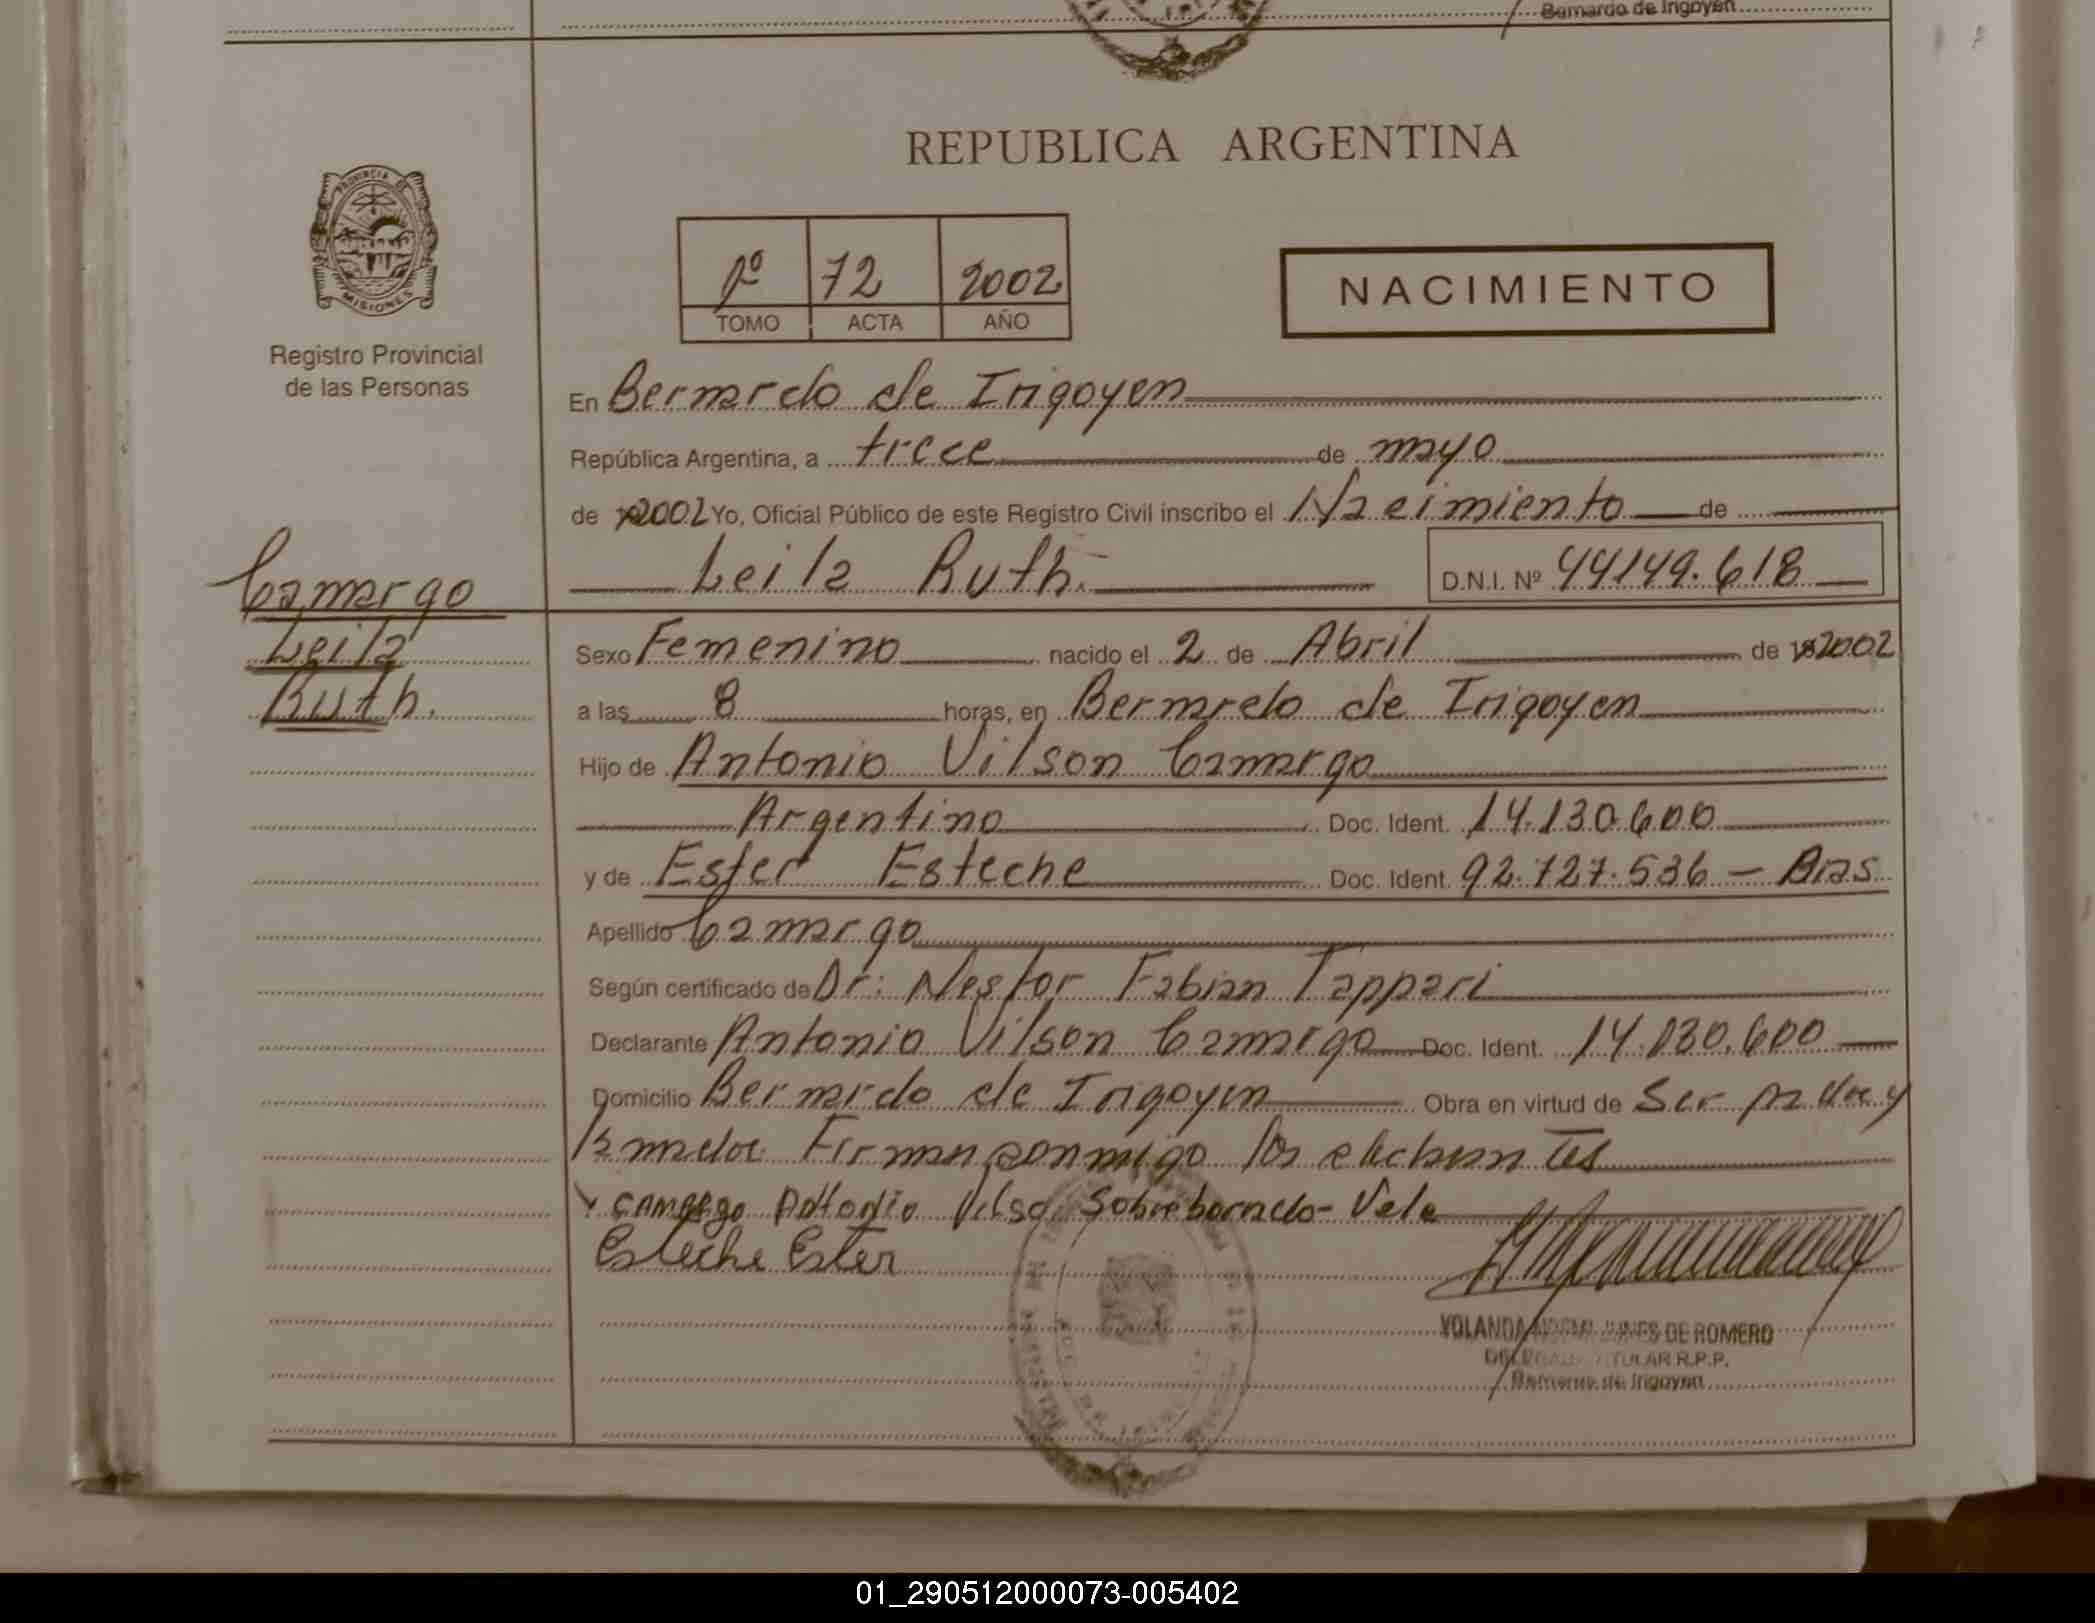 Bernardo de Irigoyen
REPUBLICA ARGENTINA
PROVINCIA DE
MISIONES
Registro Provincial
de las Personas
1º 72 2002
TOMO ACTA AÑO
NACIMIENTO
En Bernardo de Irigoyen
República Argentina, a trece de mayo
de 2002 Yo, Oficial Público de este Registro Civil inscribo el Nacimiento de
Leila Ruth. D.N.I. Nº 44149.618
Camargo
Leila
Ruth.
Sexo Femenino nacido el 2 de Abril de 2002
a las 8 horas, en Bernardo de Irigoyen
Hijo de Antonio Vilson Camargo
Argentino Doc. Ident. 14.130.600
y de Ester Esteche Doc. Ident. 92.727.536 - Bras
Apellido Camargo
Según certificado de Dr: Nestor Fabian Tappari
Declarante Antonio Vilson Camargo Doc. Ident. 14.130.600
Domicilio Bernardo de Irigoyen Obra en virtud de Ser padre y
Firman conmigo los
CAMARgo Antonio Vilso Sobreborrado - Vale
Esteche Ester
YOLANDA NOEMI DE ROMERO
TITULAR R.P.P.
Bernardo de Irigoyen
01_290512000073-005402